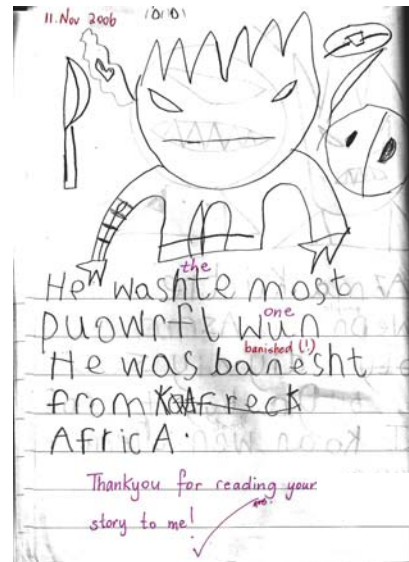 11. Nov 2006
the
He washte most
one
puowrfl wun
banished (!)
He was banesht
from Kafreck
AfricA.
Thankyou for reading your
story to me!